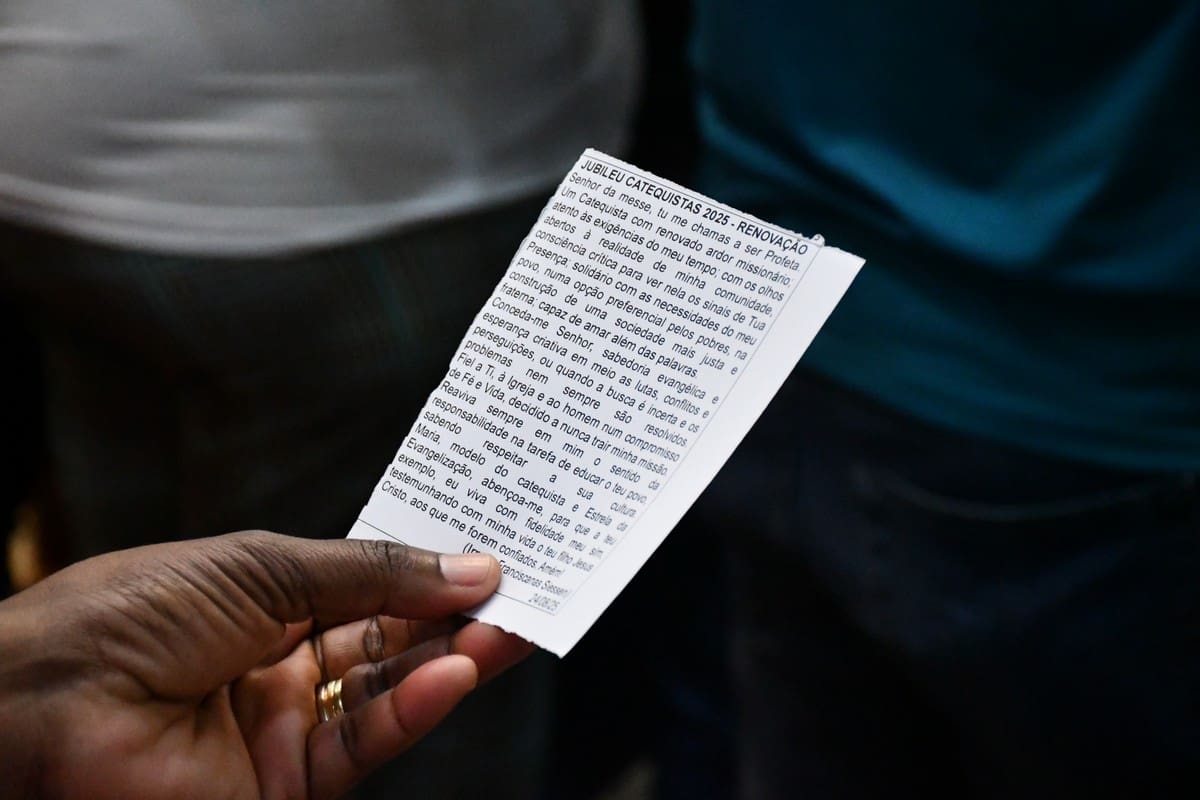 JUBILEU CATEQUISTAS 2025 - RENOVAÇÃO
Senhor da messe, tu me chamas a ser Profeta.
Um Catequista com renovado ardor missionário;
atento às exigências do meu tempo; com os olhos
abertos à realidade de minha comunidade,
consciência crítica para ver nela os sinais de Tua
Presença: solidário com as necessidades do meu
povo, numa opção preferencial pelos pobres, na
construção de uma sociedade mais justa e
fraterna; capaz de amar além das palavras.
Conceda-me Senhor, sabedoria evangélica e
esperança criativa em meio as lutas, conflitos e
perseguições, ou quando a busca é incerta e os
problemas nem sempre são resolvidos
Fiel a Ti, à Igreja e ao homem num compromisso
de Fé e Vida, decidido a nunca trair minha missão.
Reaviva sempre em mim o sentido da
responsabilidade na tarefa de educar o teu povo,
sabendo respeitar a sua cultura.
Maria, modelo do catequista e Estrela da
Evangelização, abençoa-me, para que a teu
exemplo, eu viva com fidelidade meu sim,
testemunhando com minha vida o teu filho Jesus
Cristo, aos que me forem confiados. Amém!
Franciscanas Siessen)
24/08/25